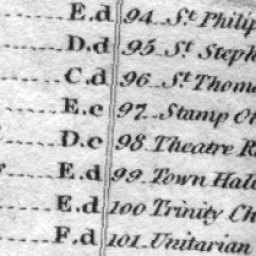 E.d 94 St. Philip
D.d 95 St. Steph
C.d 96 St. Thoma
E.c 97 Stamp O
D.c 98 Theatre R
E.d 99 Town Hall
E.d 100 Trinity Ch
F.d 101 Unitarian